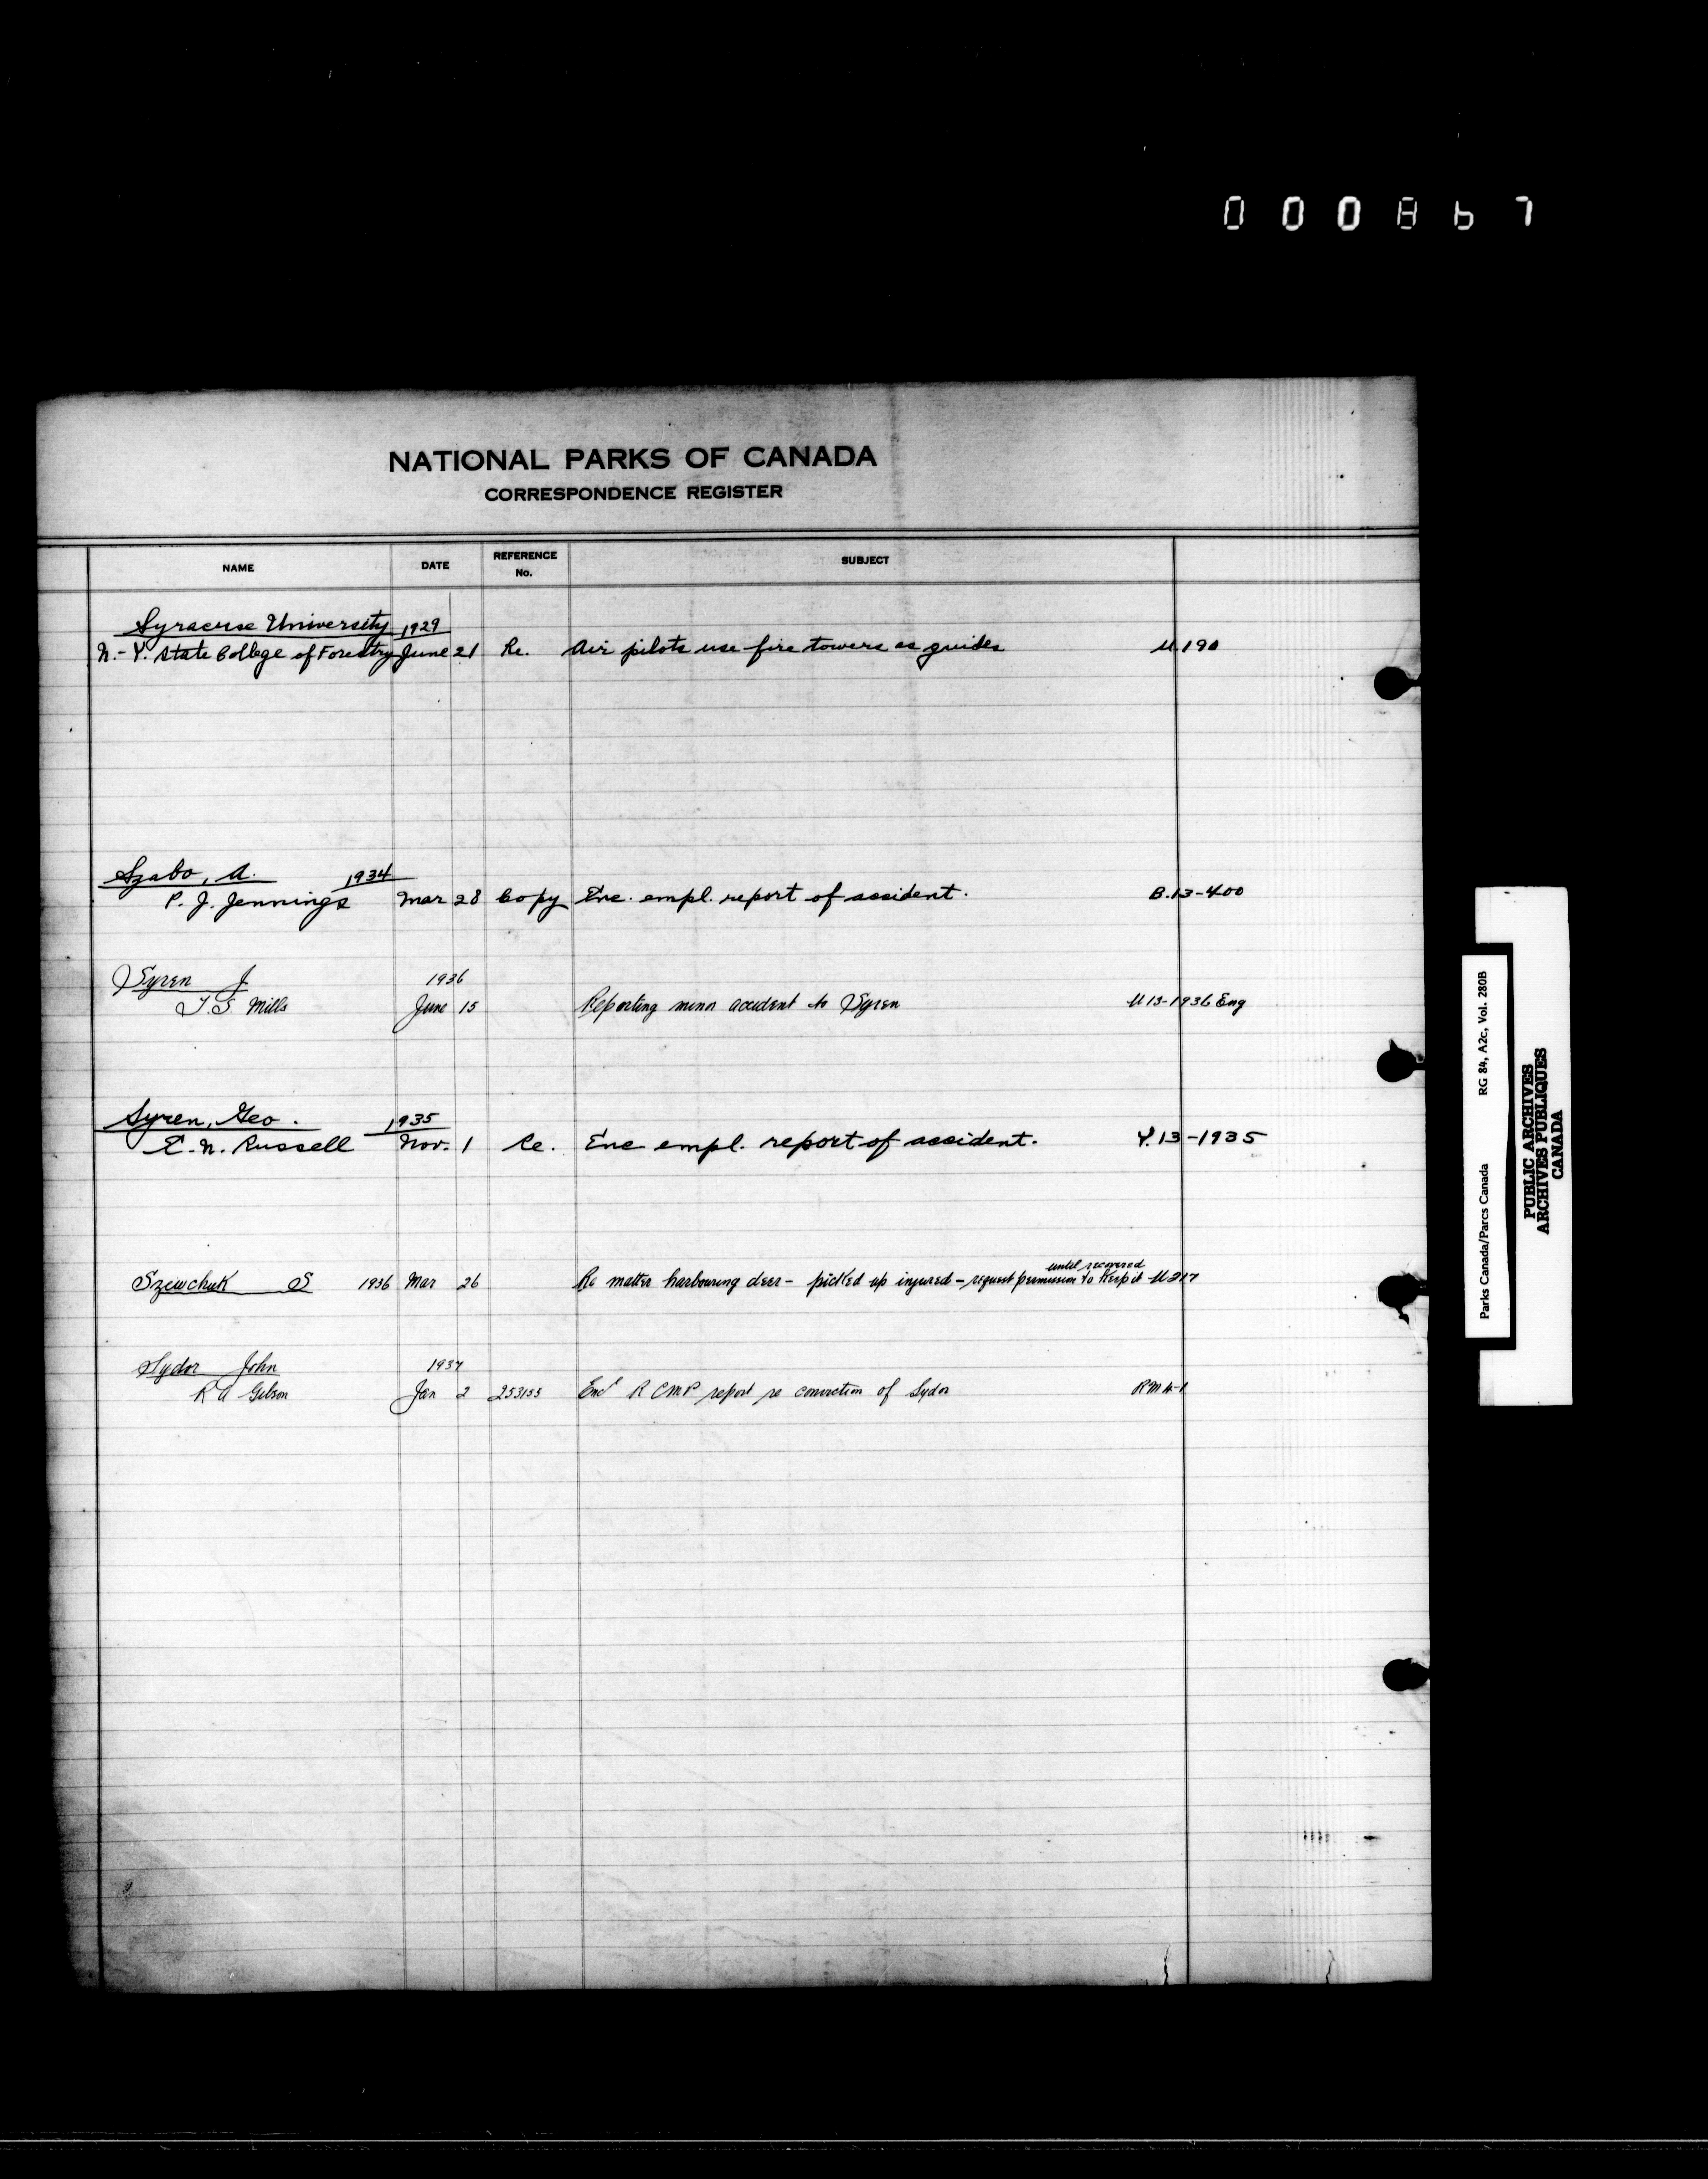 000867
NATIONAL PARKS OF CANADA
CORRESPONDENCE REGISTER
NAME DATE REFERENCE No. SUBJECT
Syracuse University 1929
N.-Y. State College of Forestry June 21 Re. Air pilots use fire towers as guides U.190
Szabo, A. 1934
P. J. Jennings Mar 28 Copy Enc. empl. report of accident. B.13-400
Syren J. 1936
T.S. Mills June 15 Reporting minor accident to Syren U13-1936 Eng
Syren, Geo. 1935
E. N. Russell Nov. 1 Re. Enc empl. report of accident. Y.13-1935
until recovered
Szewchuk S 1936 Mar 26 Re matter harbouring deer - picked up injured - request permission to keep it U217
Sydor John 1937
R A Gibson Jan 2 253155 Encl R C M P report re conviction of Sydor RM 4-1
Parks Canada/Parcs Canada RG 84, A2c, Vol. 280B
PUBLIC ARCHIVES
ARCHIVES PUBLIQUES
CANADA